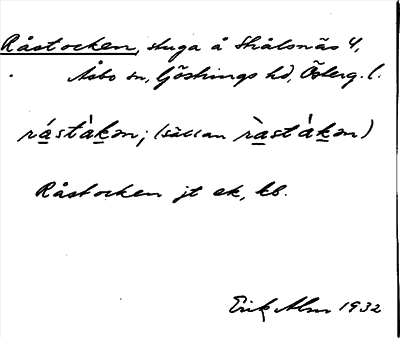 Råstocken, stuga å Skålsnäs 4,
Åsbo sn, Göstrings hd, Österg. l.
rástàken; (sällan ràstáken)
Råstocken jt ek, kb.
Erik Alm 1932